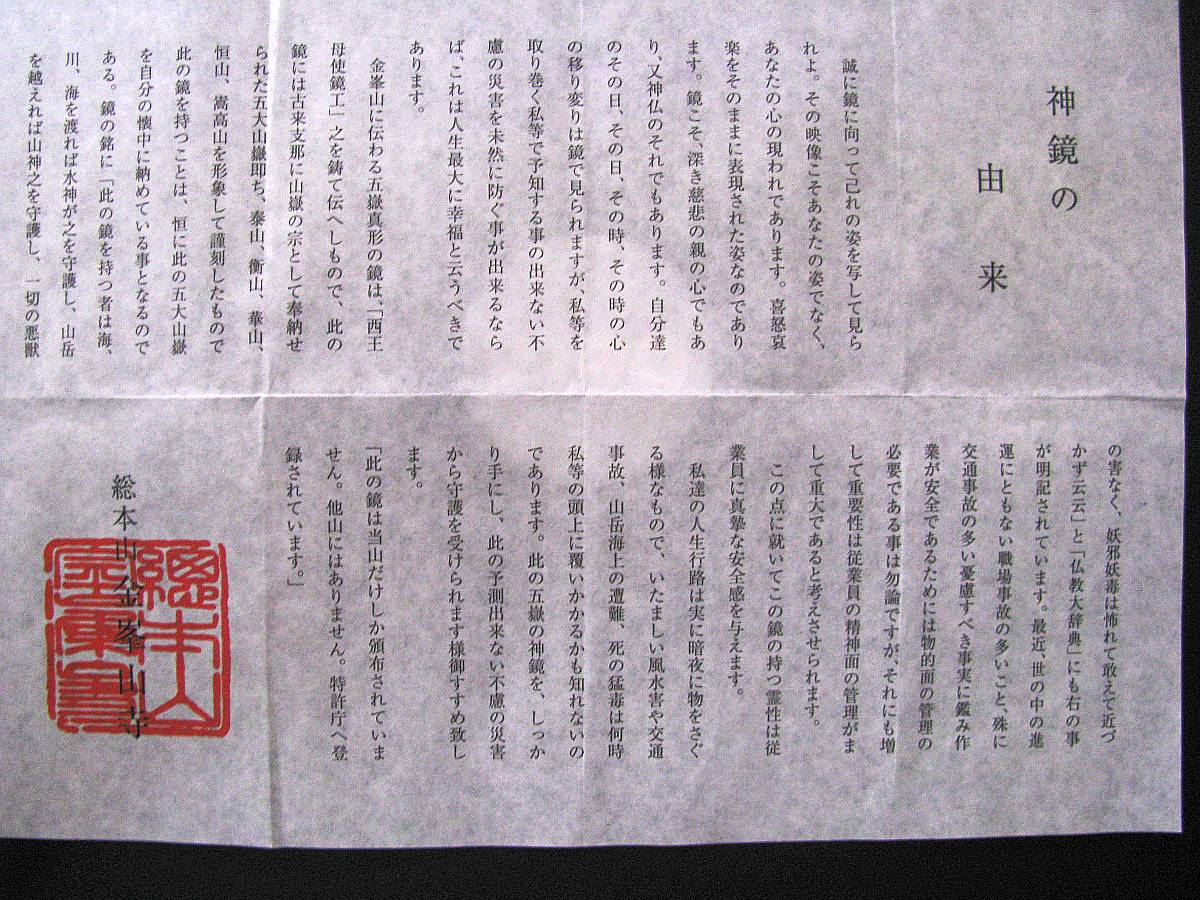 神鏡の
由来
誠に鏡に向って己れの姿を写して見ら
れよ。その映像こそあなたの姿でなく、
あなたの心の現われであります。喜怒哀
楽をそのままに表現された姿なのであり
ます。鏡こそ、深き慈悲の親の心でもあ
り、又神仏のそれでもあります。自分達
のその日、その日、その時、その時の心
の移り変りは鏡で見られますが、私等を
取り巻く私等で予知する事の出来ない不
慮の災害を未然に防ぐ事が出来るなら
ば、これは人生最大に幸福と云うべきで
あります。
金峯山に伝わる五嶽真形の鏡は、「西王
母使鏡工」之を鋳て伝へしもので、此の
鏡には古来支那に山嶽の宗として奉納せ
られた五大山嶽即ち、泰山、衡山、華山、
恒山、嵩高山を形象して謹刻したもので
此の鏡を持つことは、恒に此の五大山嶽
を自分の懐中に納めている事となるので
ある。鏡の銘に「此の鏡を持つ者は海、
川、海を渡れば水神が之を守護し、山岳
を越えれば山神之を守護し、一切の悪獣
の害なく、妖邪妖毒は怖れて敢えて近づ
かず云云」と「仏教大辞典」にも右の事
が明記されています。最近、世の中の進
運にともない職場事故の多いこと、殊に
交通事故の多い憂慮すべき事実に鑑み作
業が安全であるためには物的面の管理の
必要である事は勿論ですが、それにも増
して重要性は従業員の精神面の管理がま
して重大であると考えさせられます。
この点に就いてこの鏡の持つ霊性は従
業員に真摯な安全感を与えます。
私達の人生行路は実に暗夜に物をさぐ
る様なもので、いたましい風水害や交通
事故、山岳海上の遭難、死の猛毒は何時
私等の頭上に覆いかかるかも知れないの
であります。此の五嶽の神鏡を、しっか
り手にし、此の予測出来ない不慮の災害
から守護を受けられます様御すすめ致し
ます。
「此の鏡は当山だけしか頒布されていま
せん。他山にはありません。特許庁へ登
録されています。」
総本山金峯山寺